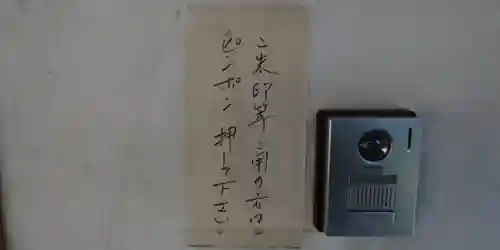 ご朱印等ご用の方は
ピンポン押して下さい